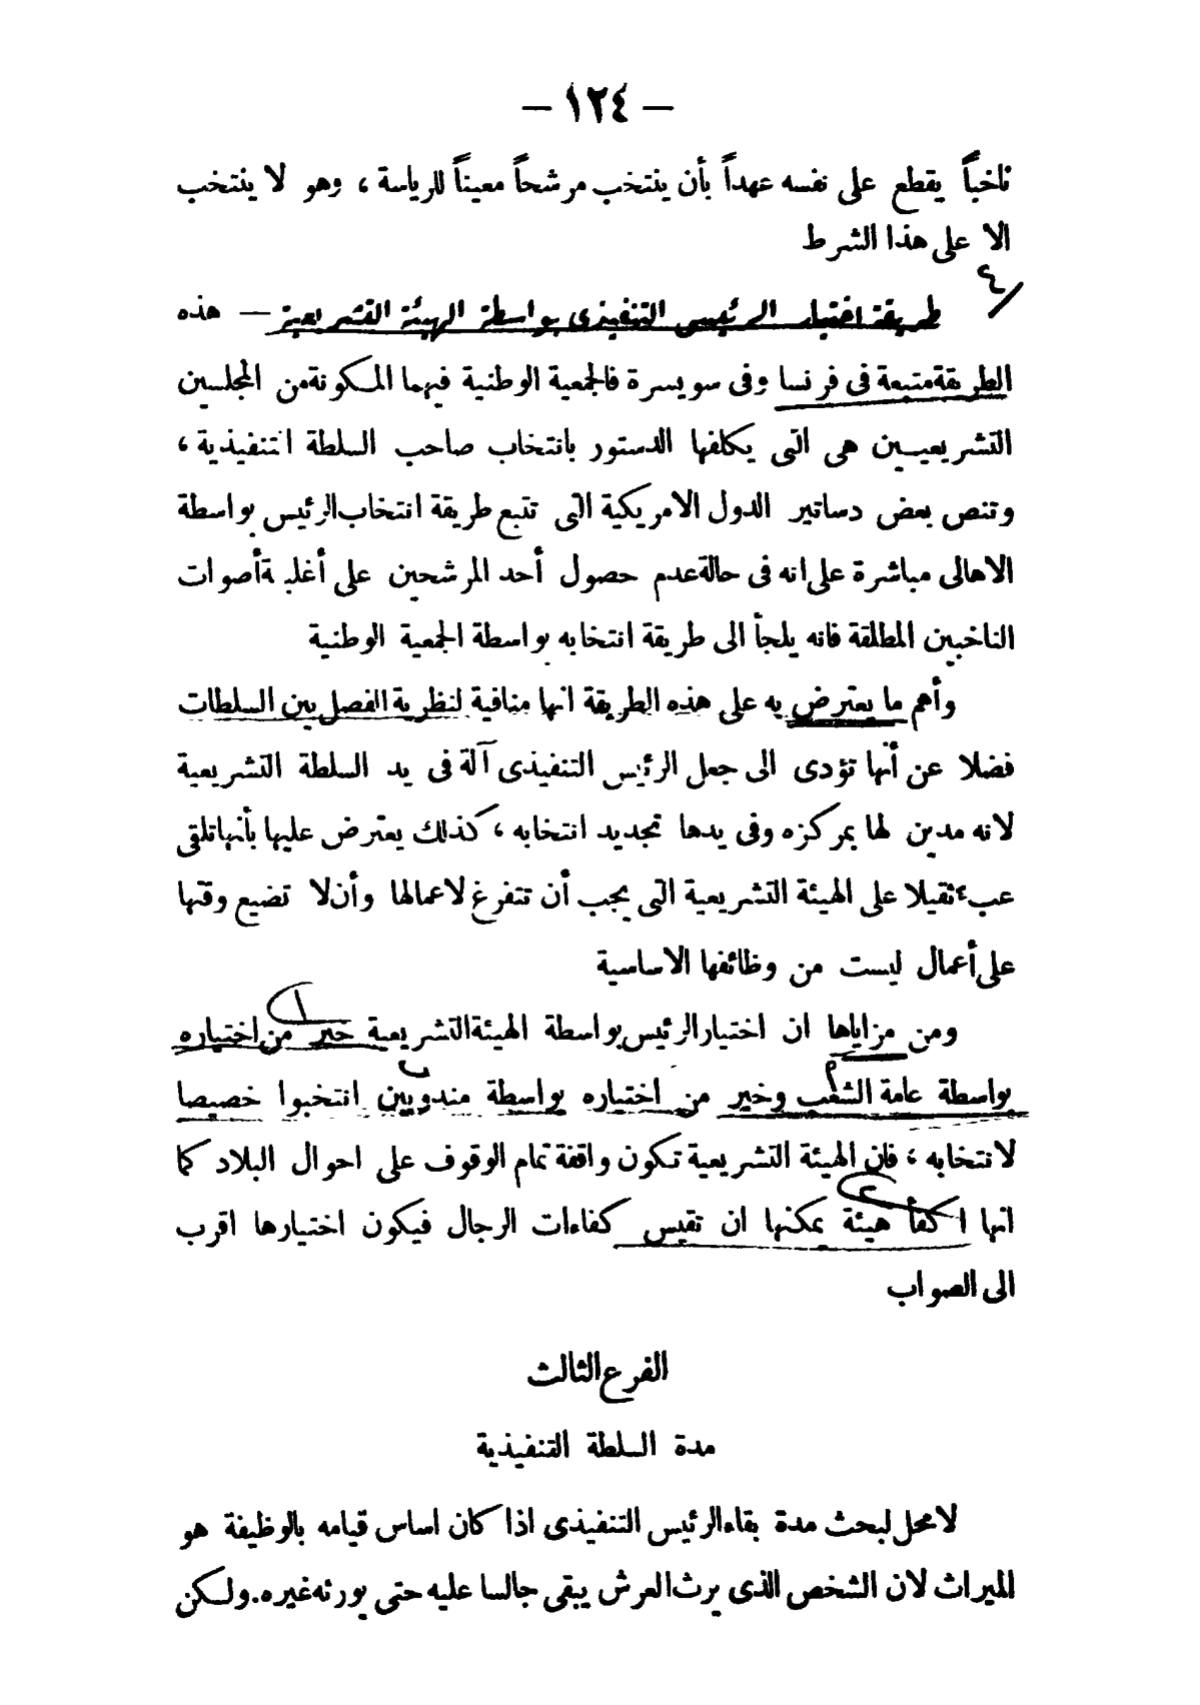 — ١٢٤ —
ناخباً يقطع على نفسه عهداً بأن ينتخب مرشحاً معيناً للرياسة ، وهو لا ينتخب
الا على هذا الشرط
٤/
طريقة اختيار الرئيس التنفيذى بواسطة الهيئة التشريعية — هذه
الطريقة متبعة فى فرنسا وفى سويسرة فالجمعية الوطنية فيهما المكونة من المجلسين
التشريعيين هى التى يكلفها الدستور بانتخاب صاحب السلطة التنفيذية ،
وتنص بعض دساتير الدول الامريكية التى تتبع طريقة انتخاب الرئيس بواسطة
الاهالى مباشرة على انه فى حالة عدم حصول أحد المرشحين على أغلبية أصوات
الناخبين المطلقة فانه يلجأ الى طريقة انتخابه بواسطة الجمعية الوطنية
وأهم ما يعترض به على هذه الطريقة انها منافية لنظرية الفصل بين السلطات
فضلا عن أنها تؤدى الى جعل الرئيس التنفيذى آلة فى يد السلطة التشريعية
لانه مدين لها بمركزه وفى يدها تجديد انتخابه ، كذلك يعترض عليها بأنها تلقى
عبء ثقيلا على الهيئة التشريعية التى يجب أن تتفرغ لاعمالها وأن لا تضيع وقتها
على أعمال ليست من وظائفها الاساسية
ومن مزاياها ان اختيار الرئيس بواسطة الهيئة التشريعية خير من اختياره
بواسطة عامة الشعب وخير من اختياره بواسطة مندوبين انتخبوا خصيصا
لانتخابه ، فان الهيئة التشريعية تكون واقفة تمام الوقوف على احوال البلاد كما
انها اكفأ هيئة يمكنها ان تقيس كفاءات الرجال فيكون اختيارها اقرب
الى الصواب
الفرع الثالث
مدة السلطة التنفيذية
لا محل لبحث مدة بقاء الرئيس التنفيذى اذا كان اساس قيامه بالوظيفة هو
الميراث لان الشخص الذى يرث العرش يبقى جالسا عليه حتى يورثه غيره . ولكن